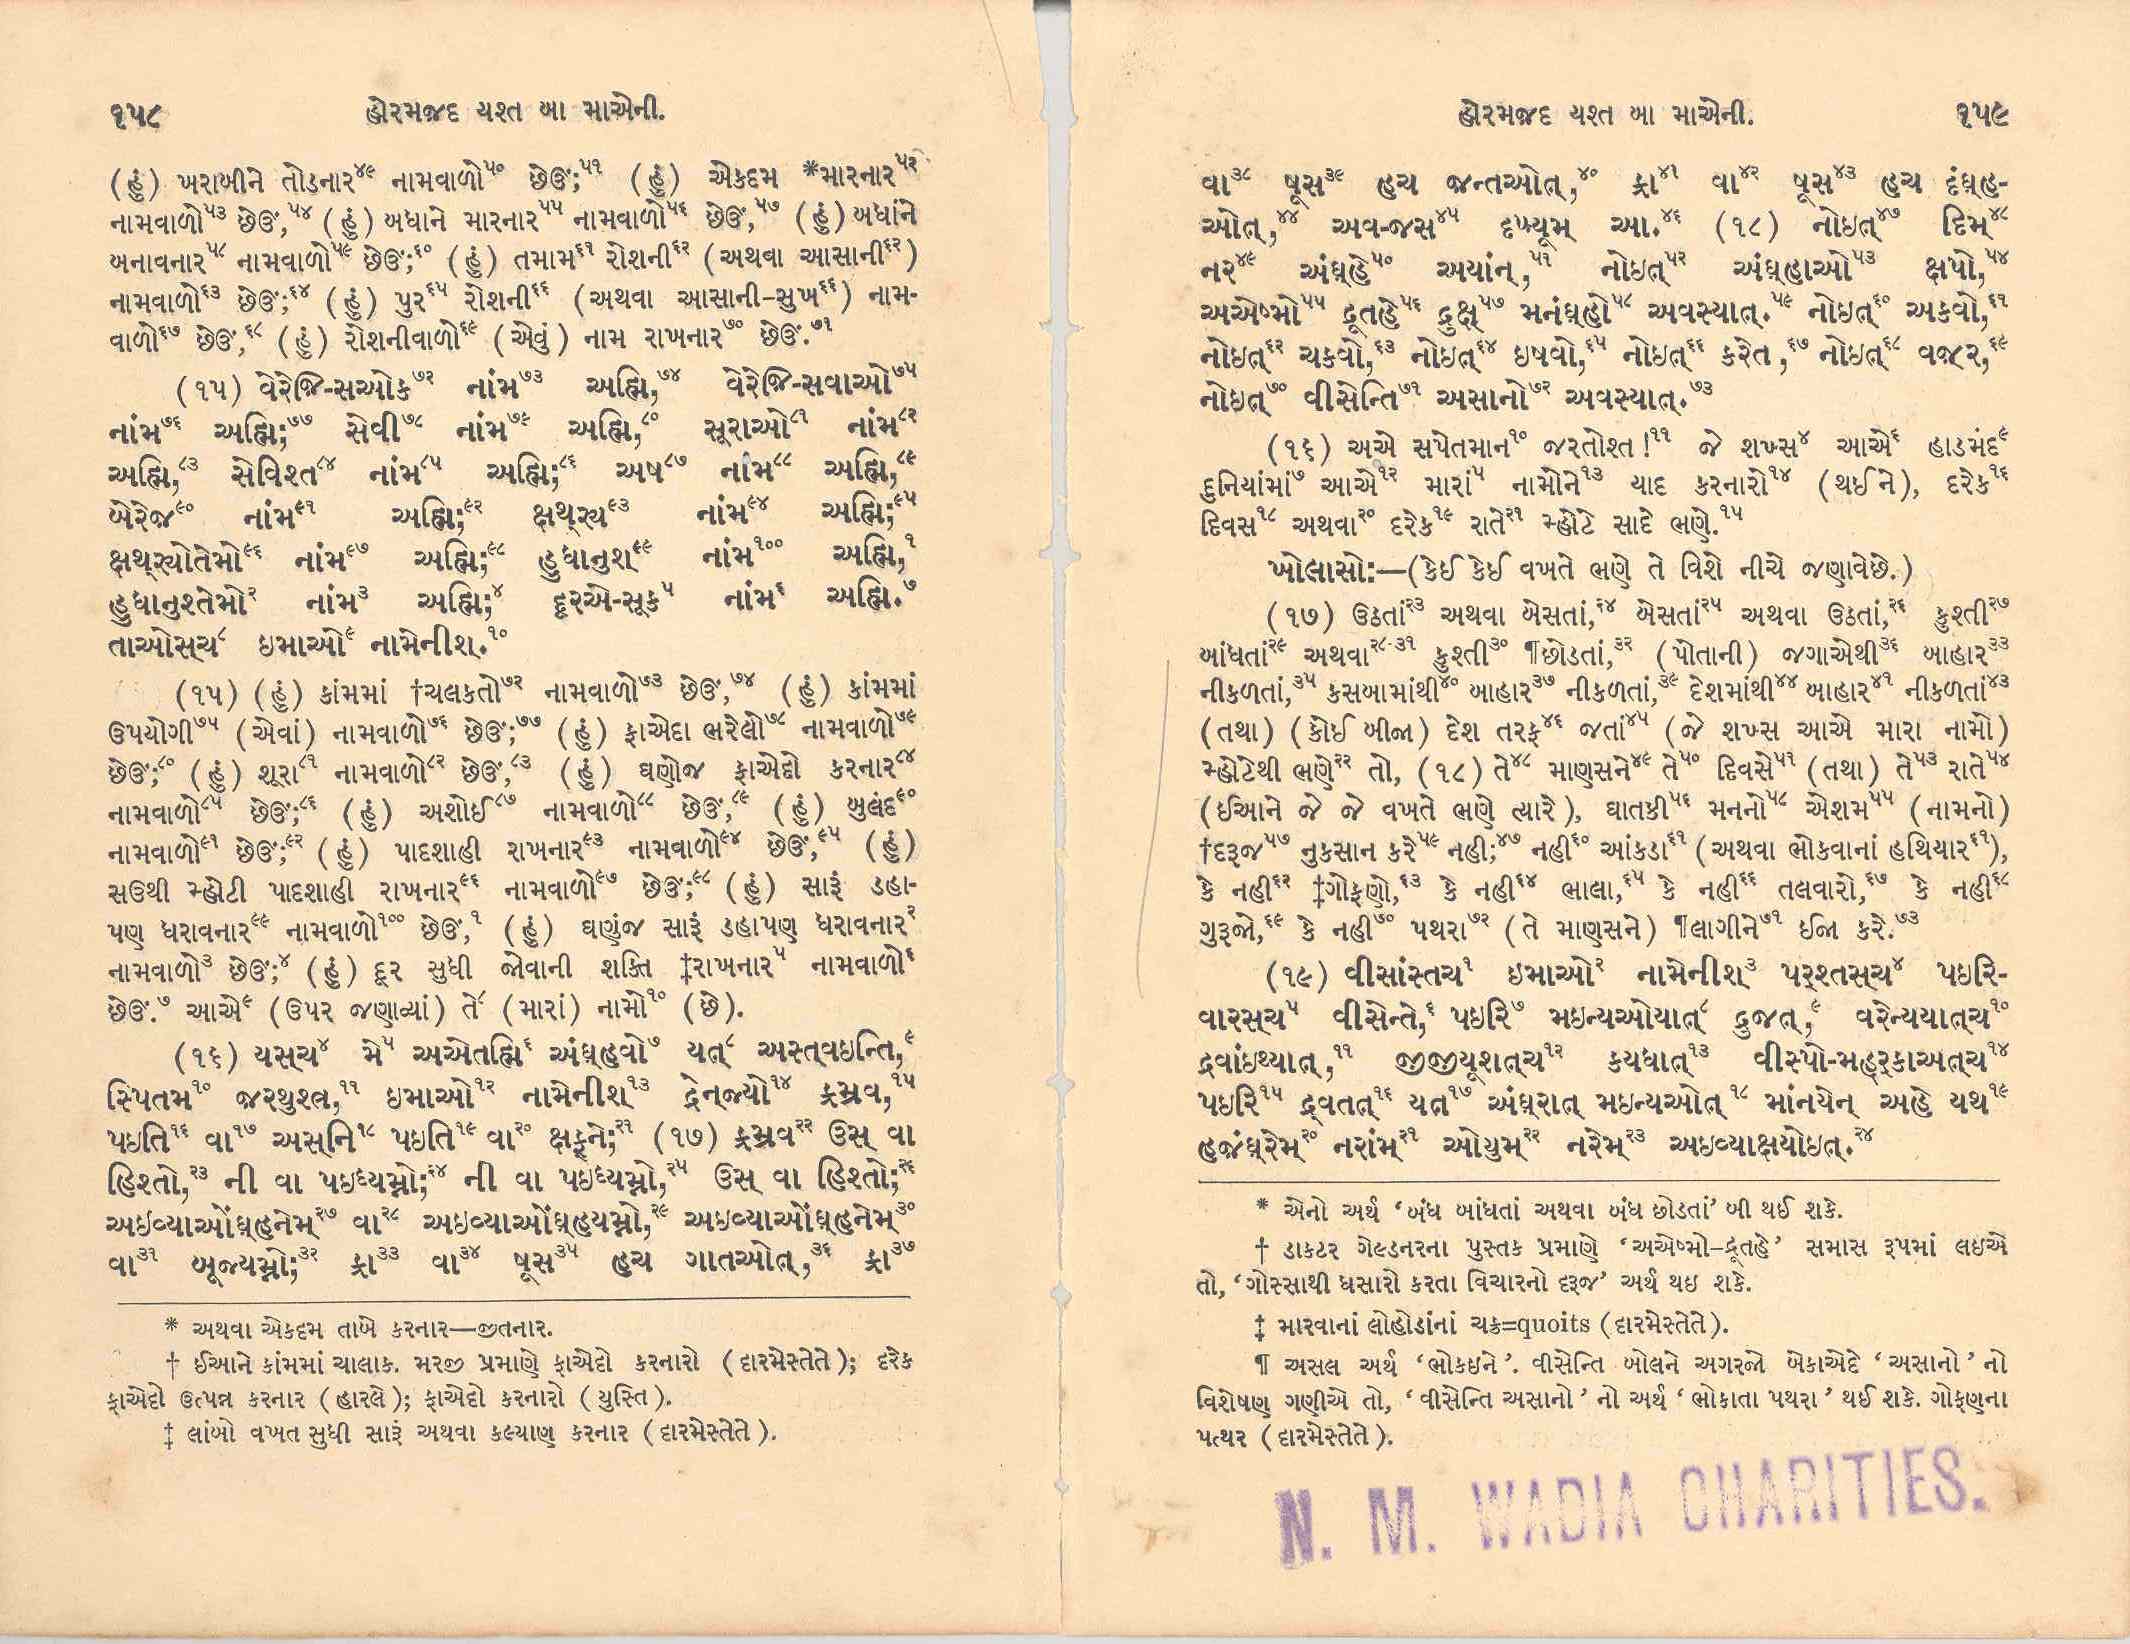 ૧૫૮ હોરમજદ યશ્ત બા માએની.
(હું) ખરાબીને તોડનાર૪૯ નામવાળો૫૦ છેઊં;૫૧ (હું) એકદમ *મારનાર૫૨
નામવાળો૫૩ છેઊં,૫૪ (હું) બધાને મારનાર૫૫ નામવાળો૫૬ છેઊં,૫૭ (હું) બધાંને
બનાવનાર૫૮ નામવાળો૫૯ છેઊં;૬૦ (હું) તમામ૬૧ રોશની૬૨ (અથવા આસાની૬૨)
નામવાળો૬૩ છેઊં;૬૪ (હું) પુર૬૫ રોશની૬૬ (અથવા આસાની-સુખ૬૬) નામ-
વાળો૬૭ છેઊં,૬૮ (હું) રોશનીવાળો૬૯ (એવું) નામ રાખનાર૭૦ છેઊં.૭૧
(૧૫) વેરેજિ-સઓક૭૨ નાંમ૭૩ અહ્મિ,૭૪ વેરેજિ-સવાઓ૭૫
નાંમ૭૬ અહ્મિ;૭૭ સેવી૭૮ નાંમ૭૯ અહ્મિ,૮૦ સૂરાઓ૮૧ નાંમ૮૨
અહ્મિ,૮૩ સેવિશ્ત૮૪ નાંમ૮૫ અહ્મિ;૮૬ અષ૮૭ નાંમ૮૮ અહ્મિ,૮૯
બેરેજ૯૦ નાંમ૯૧ અહ્મિ;૯૨ ક્ષથ્ર્ય૯૩ નાંમ૯૪ અહ્મિ;૯૫
ક્ષથ્ર્યોતેમો૯૬ નાંમ૯૭ અહ્મિ;૯૮ હુધાનુશ૯૯ નાંમ૧૦૦ અહ્મિ,૧
હુધાનુશ્તેમો૨ નાંમ૩ અહ્મિ;૪ દૂરએ-સૂક૫ નાંમ૬ અહ્મિ.૭
તાઓસ્ચ૮ ઇમાઓ૯ નામેનીશ્.૧૦
(૧૫) (હું) કાંમમાં †ચલકતો૭૨ નામવાળો૭૩ છેઊં,૭૪ (હું) કાંમમાં
ઉપયોગી૭૫ (એવાં) નામવાળો૭૬ છેઊં;૭૭ (હું) ફાએદા ભરેલો૭૮ નામવાળો૭૯
છેઊં;૮૦ (હું) શૂરા૮૧ નામવાળો૮૨ છેઊં,૮૩ (હું) ઘણોજ ફાએદો કરનાર૮૪
નામવાળો૮૫ છેઊં;૮૬ (હું) અશોઈ૮૭ નામવાળો૮૮ છેઊં,૮૯ (હું) બુલંદ૯૦
નામવાળો૯૧ છેઊં;૯૨ (હું) પાદશાહી રાખનાર૯૩ નામવાળો૯૪ છેઊં,૯૫ (હું)
સઉથી મ્હોટી પાદશાહી રાખનાર૯૬ નામવાળો૯૭ છેઊં;૯૮ (હું) સારૂં ડહા-
પણ ધરાવનાર૯૯ નામવાળો૧૦૦ છેઊં,૧ (હું) ઘણુંજ સારૂં ડહાપણ ધરાવનાર૨
નામવાળો૩ છેઊં;૪ (હું) દૂર સુધી જોવાની શક્તિ ‡રાખનાર૫ નામવાળો૬
છેઊં.૭ આએ૯ (ઉપર જણાવ્યાં) તે૮ (મારાં) નામો૧૦ (છે).
(૧૬) યસ્ચ૪ મે૫ અએતહ્મિ૬ અંઘ્હવો૭ યત્૮ અસ્ત્વઇન્તિ,૯
સ્પિતમ૧૦ જરથુશ્ત્ર,૧૧ ઇમાઓ૧૨ નામેનીશ્૧૩ દ્રેન્જ્યો૧૪ ફ્રમ્રવ,૧૫
પઇતિ૧૬ વા૧૭ અસ્નિ૧૮ પઇતિ૧૯ વા૨૦ ક્ષફ્ને;૨૧ (૧૭) ફ્રમ્રવ૨૨ ઉસ્ વા
હિશ્તો,૨૩ ની વા પઇધ્યમ્નો;૨૪ ની વા પઇધ્યમ્નો,૨૫ ઉસ્ વા હિશ્તો;૨૬
અઇવ્યાઓંઘ્હનેમ્૨૭ વા૨૮ અઇવ્યાઓંઘ્હયમ્નો,૨૯ અઇવ્યાઓંઘ્હનેમ્૩૦
વા૩૧ બૂજ્યમ્નો;૩૨ ફ્રા૩૩ વા૩૪ ષૂસ૩૫ હચ ગાતઓત્,૩૬ ફ્રા૩૭
* અથવા એકદમ તાબે કરનાર—જીતનાર.
† ઈઆને કાંમમાં ચાલાક. મરજી પ્રમાણે ફાએદો કરનારો (દારમેસ્તેતે); દરેક
ફાએદો ઉત્પન્ન કરનાર (હારલે); ફાએદો કરનારો (યુસ્તિ).
‡ લાંબો વખત સુધી સારૂં અથવા કલ્યાણ કરનાર (દારમેસ્તેતે).
હોરમજદ યશ્ત બા માએની. ૧૫૯
વા૩૮ ષૂસ૩૯ હચ જન્તઓત્,૪૦ ફ્રા૪૧ વા૪૨ ષૂસ૪૩ હચ દંઘ્હ-
ઓત્,૪૪ અવ-જસ૪૫ દખ્યૂમ્ આ.૪૬ (૧૮) નોઇત્૪૭ દિમ્૪૮
નર૪૯ અંઘ્હે૫૦ અયાંન્,૫૧ નોઇત્૫૨ અંઘ્હાઓ૫૩ ક્ષપો,૫૪
અએષ્મો૫૫ દ્રૂતહે૫૬ દ્રુક્ષ્૫૭ મનંઘ્હો૫૮ અવસ્યાત્.૫૯ નોઇત્૬૦ અકવો,૬૧
નોઇત્૬૨ ચકવો,૬૩ નોઇત્૬૪ ઇષવો,૬૫ નોઇત્૬૬ કરેત,૬૭ નોઇત્૬૮ વજ્ર,૬૯
નોઇત્૭૦ વીસેન્તિ૭૧ અસાનો૭૨ અવસ્યાત્.૭૩
(૧૬) અએ સપેતમાન૧૦ જરતોશ્ત!૧૧ જે શખ્સ૪ આએ૬ હાડમંદ૯
દુનિયાંમાં૭ આએ૧૨ મારાં૫ નામોને૧૩ યાદ કરનારો૧૪ (થઈને), દરેક૧૬
દિવસ૧૮ અથવા૨૦ દરેક૧૯ રાતે૨૧ મ્હોટે સાદે ભણે.૧૫
ખોલાસો:—(કેઈ કેઈ વખતે ભણે તે વિશે નીચે જણાવેછે.)
(૧૭) ઉઠતાં૨૩ અથવા બેસતાં,૨૪ બેસતાં૨૫ અથવા ઉઠતાં,૨૬ કુશ્તી૨૭
બાંધતાં૨૯ અથવા૨૮-૩૧ કુશ્તી૩૦ ¶છોડતાં,૩૨ (પોતાની) જગાએથી૩૬ બાહાર૩૩
નીકળતાં,૩૫ કસબામાંથી૪૦ બાહાર૩૭ નીકળતાં,૩૯ દેશમાંથી૪૪ બાહાર૪૧ નીકળતાં૪૩
(તથા) (કોઈ બીજા) દેશ તરફ૪૬ જતાં૪૫ (જે શખ્સ આએ મારા નામો)
મ્હોટેથી ભણે૨૨ તો, (૧૮) તે૪૮ માણસને૪૯ તે૫૦ દિવસે૫૧ (તથા) તે૫૩ રાતે૫૪
(ઈઆને જે જે વખતે ભણે ત્યારે), ઘાતકી૫૬ મનનો૫૮ એશમ૫૫ (નામનો)
†દરૂજ૫૭ નુકસાન કરે૫૯ નહી;૪૭ નહી૬૦ આંકડા૬૧ (અથવા ભોકવાનાં હથિયાર૬૧),
કે નહી૬૨ ‡ગોફણો,૬૩ કે નહી૬૪ ભાલા,૬૫ કે નહી૬૬ તલવારો,૬૭ કે નહી૬૮
ગુરૂજો,૬૯ કે નહી૭૦ પથરા૭૨ (તે માણસને) ¶લાગીને૭૧ ઈજા કરે.૭૩
(૧૯) વીસાંસ્તચ૧ ઇમાઓ૨ નામેનીશ૩ પર્શ્તસ્ચ૪ પઇરિ-
વારસ્ચ૫ વીસેન્તે,૬ પઇરિ૭ મઇન્યઓયાત્૮ દ્રુજત્,૯ વરેન્યયાત્ચ૧૦
દ્રવાંઇથ્યાત્,૧૧ જીજીયૂશત્ચ૧૨ કયધાત્૧૩ વીસ્પો-મહર્કાઅત્ચ૧૪
પઇરિ૧૫ દ્ર્વતત્૧૬ યત્૧૭ અંઘ્રાત્ મઇન્યઓત્૧૮ માંનયેન્ અહે યથ૧૯
હજંઘ્રેમ્૨૦ નરાંમ્૨૧ ઓયુમ્૨૨ નરેમ્૨૩ અઇવ્યાક્ષયોઇત્.૨૪
* એનો અર્થ ‘બંધ બાંધતાં અથવા બંધ છોડતાં’ બી થઈ શકે.
† ડાકટર ગેલ્ડનરના પુસ્તક પ્રમાણે ‘અએષ્મો–દ્રૂતહે’ સમાસ રૂપમાં લઇએ
તો, ‘ગોસ્સાથી ધસારો કરતા વિચારનો દરૂજ’ અર્થ થઇ શકે.
‡ મારવાનાં લોહોડાંનાં ચક્ર=quoits (દારમેસ્તેતે).
¶ અસલ અર્થ ‘ભોકઇને’. વીસેન્તિ બોલને અગરજો બેકાએદે ‘અસાનો’ નો
વિશેષણ ગણીએ તો, ‘વીસેન્તિ અસાનો’ નો અર્થ ‘ભોકાતા પથરા’ થઈ શકે. ગોફણના
પત્થર (દારમેસ્તેતે).
N. M. WADIA CHARITIES.